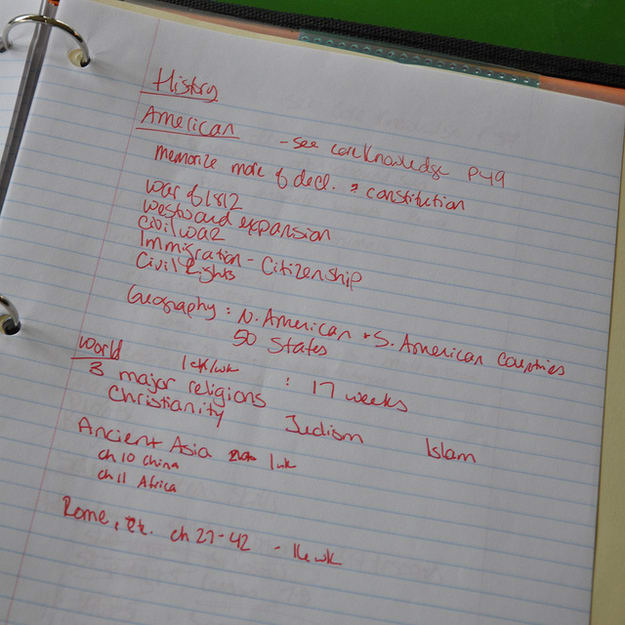 History
American - see CoreKnowledge P49
memorize more of decl. & constitution
War of 1812
westward expansion
civil war
Immigration - Citizenship
Civil Rights
Geography : N. American + S. American countries
50 States
World 1 ch/wk : 17 weeks
3 major religions
Christianity Judism Islam
Ancient Asia 1 wk
ch 10 China
ch 11 Africa
Rome, etc. ch 27-42 - 16 wk